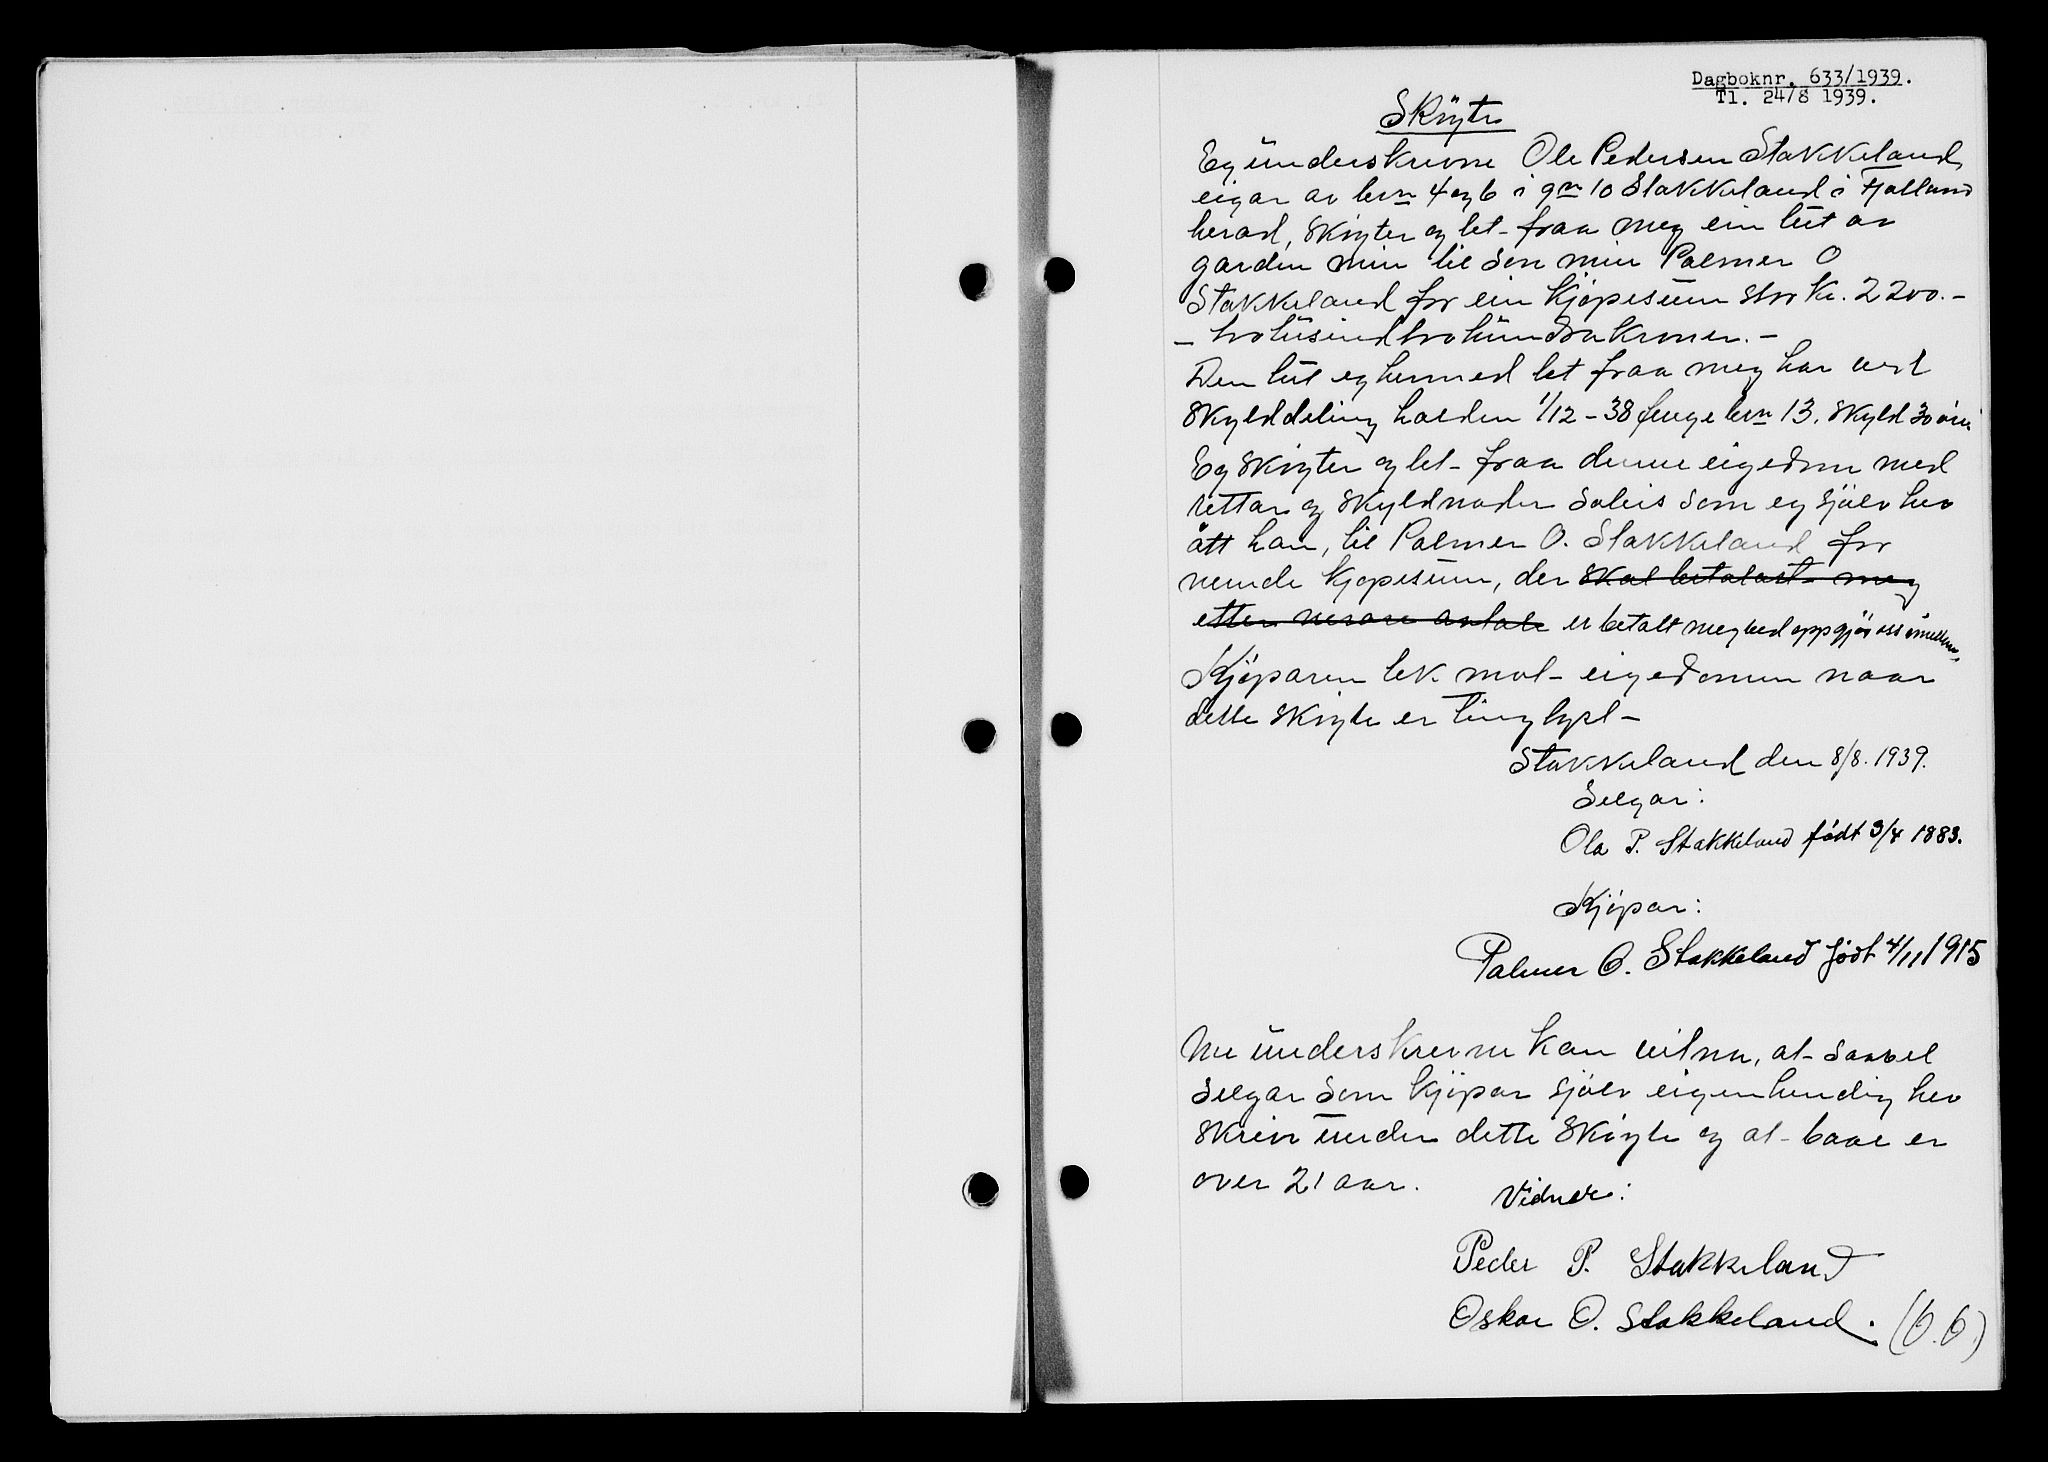 Dagboknr. 633/1939.
Tl. 24/8 1939.
Sköyte
Eg underskrivne Ole Pedersen Stakkeland,
eigar av brn 4 og 6 i gn 10 Stakkeland i Fjotland
herad, sköyter og let fraa meg ein lut av
garden min til son min Palmer O
Stakkeland for ein kjöpesum stor kr. 2200.-
- totusindtohundra kroner. -
Den lut eg hermed let fraa meg har ved
skylddeling halden 1/12 - 38 fenge brn 13. skyld 30 öre
Eg sköyter og let fraa denne eigedom med
rettar og skyldnader soleis som eg sjölv hev
ått han, til Palmer O. Stakkeland for
nemde kjöpesum, der skal betalast meg
etter nerare avtale er betalt meg ved oppgjör oss imellom.
Kjöparen tek mot eigedomen naar
dette sköyte er tinglyst -
Stakkeland den 8/8. 1939.
Selgar:
Ola P. Stakkeland födt 3/4 1883.
Kjöpar:
Palmer O. Stakkeland födt 4/11 1915
Me underskrevne kan vitna, at saavel
selgar som kjöpar sjölv eigenhendig hev
skrive under dette sköyte og at baae er
over 21 aar.
Vidner:
Peder P. Stakkeland
Oskar O. Stakkeland. (O.O)